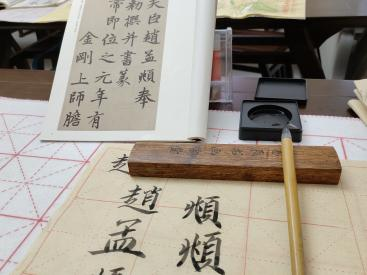 天臣趙孟頫奉
勑撰并書篆
帝即位之元年有
金剛上師膽
趙孟
頫頫